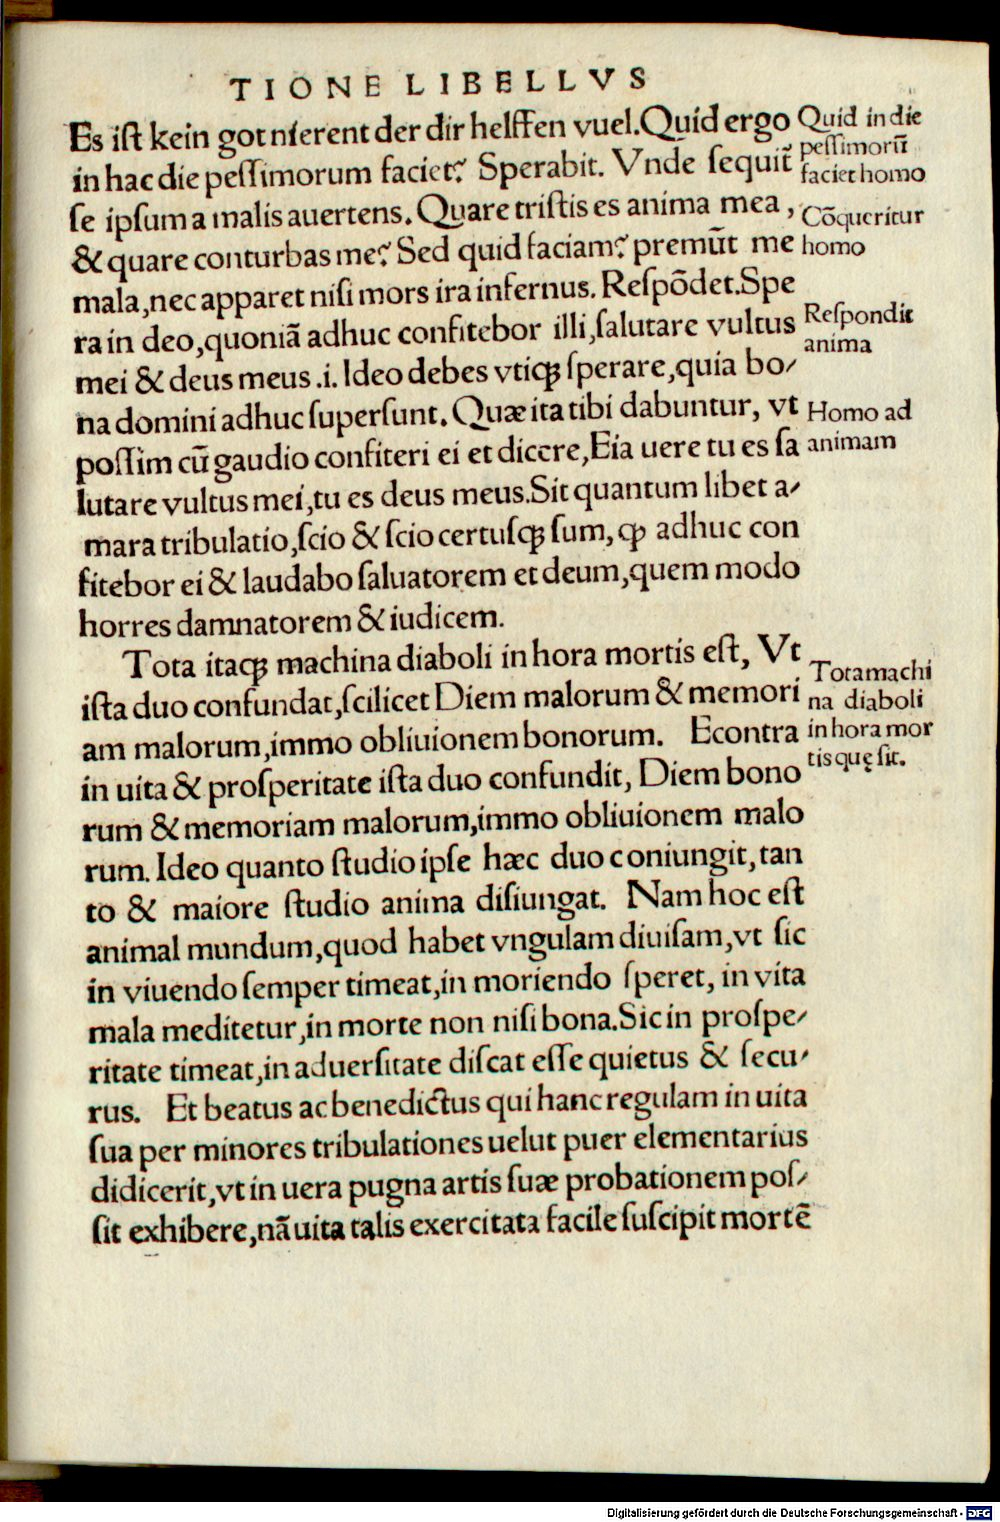 TIONE LIBELLVS
Es iſt kein got nſerent der dir helffen vuel. Quid ergo
in hac die peſſimorum faciet? Sperabit. Vnde ſequit̃
ſe ipſum a malis auertens. Quare triſtis es anima mea,
& quare conturbas me? Sed quid faciam? premũt me
mala, nec apparet niſi mors ira infernus. Reſpõdet. Spe
ra in deo, quoniã adhuc confitebor illi, ſalutare vultus
mei & deus meus .i. Ideo debes vtiqꝫ ſperare, quia bo⸗
na domini adhuc ſuperſunt. Quæ ita tibi dabuntur, vt
poſſim cũ gaudio confiteri ei et dicere, Eia uere tu es ſa
lutare vultus mei, tu es deus meus. Sit quantum libet a⸗
mara tribulatio, ſcio & ſcio certuſqꝫ ſum, ꝙ adhuc con
fitebor ei & laudabo ſaluatorem et deum, quem modo
horres damnatorem & iudicem.
Tota itaqꝫ machina diaboli in hora mortis eſt, Vt
iſta duo confundat, ſcilicet Diem malorum & memori
am malorum, immo obliuionem bonorum. Econtra
in uita & proſperitate iſta duo confundit, Diem bono
rum & memoriam malorum, immo obliuionem malo
rum. Ideo quanto ſtudio ipſe hæc duo coniungit, tan
to & maiore ſtudio anima diſiungat. Nam hoc eſt
animal mundum, quod habet vngulam diuiſam, vt ſic
in viuendo ſemper timeat, in moriendo ſperet, in vita
mala meditetur, in morte non niſi bona. Sic in proſpe⸗
ritate timeat, in aduerſitate diſcat eſſe quietus & ſecu⸗
rus. Et beatus ac benedictus qui hanc regulam in uita
ſua per minores tribulationes uelut puer elementarius
didicerit, vt in uera pugna artis ſuæ probationem poſ⸗
ſit exhibere, nã uita talis exercitata facile ſuſcipit mortẽ
Quid in die
peſſimorũ
faciet homo
Cõqueritur
homo
Reſpondit
anima
Homo ad
animam
Tota machi
na diaboli
in hora mor
tis quę ſit.
Digitalisierung gefördert durch die Deutsche Forschungsgemeinschaft - DFG